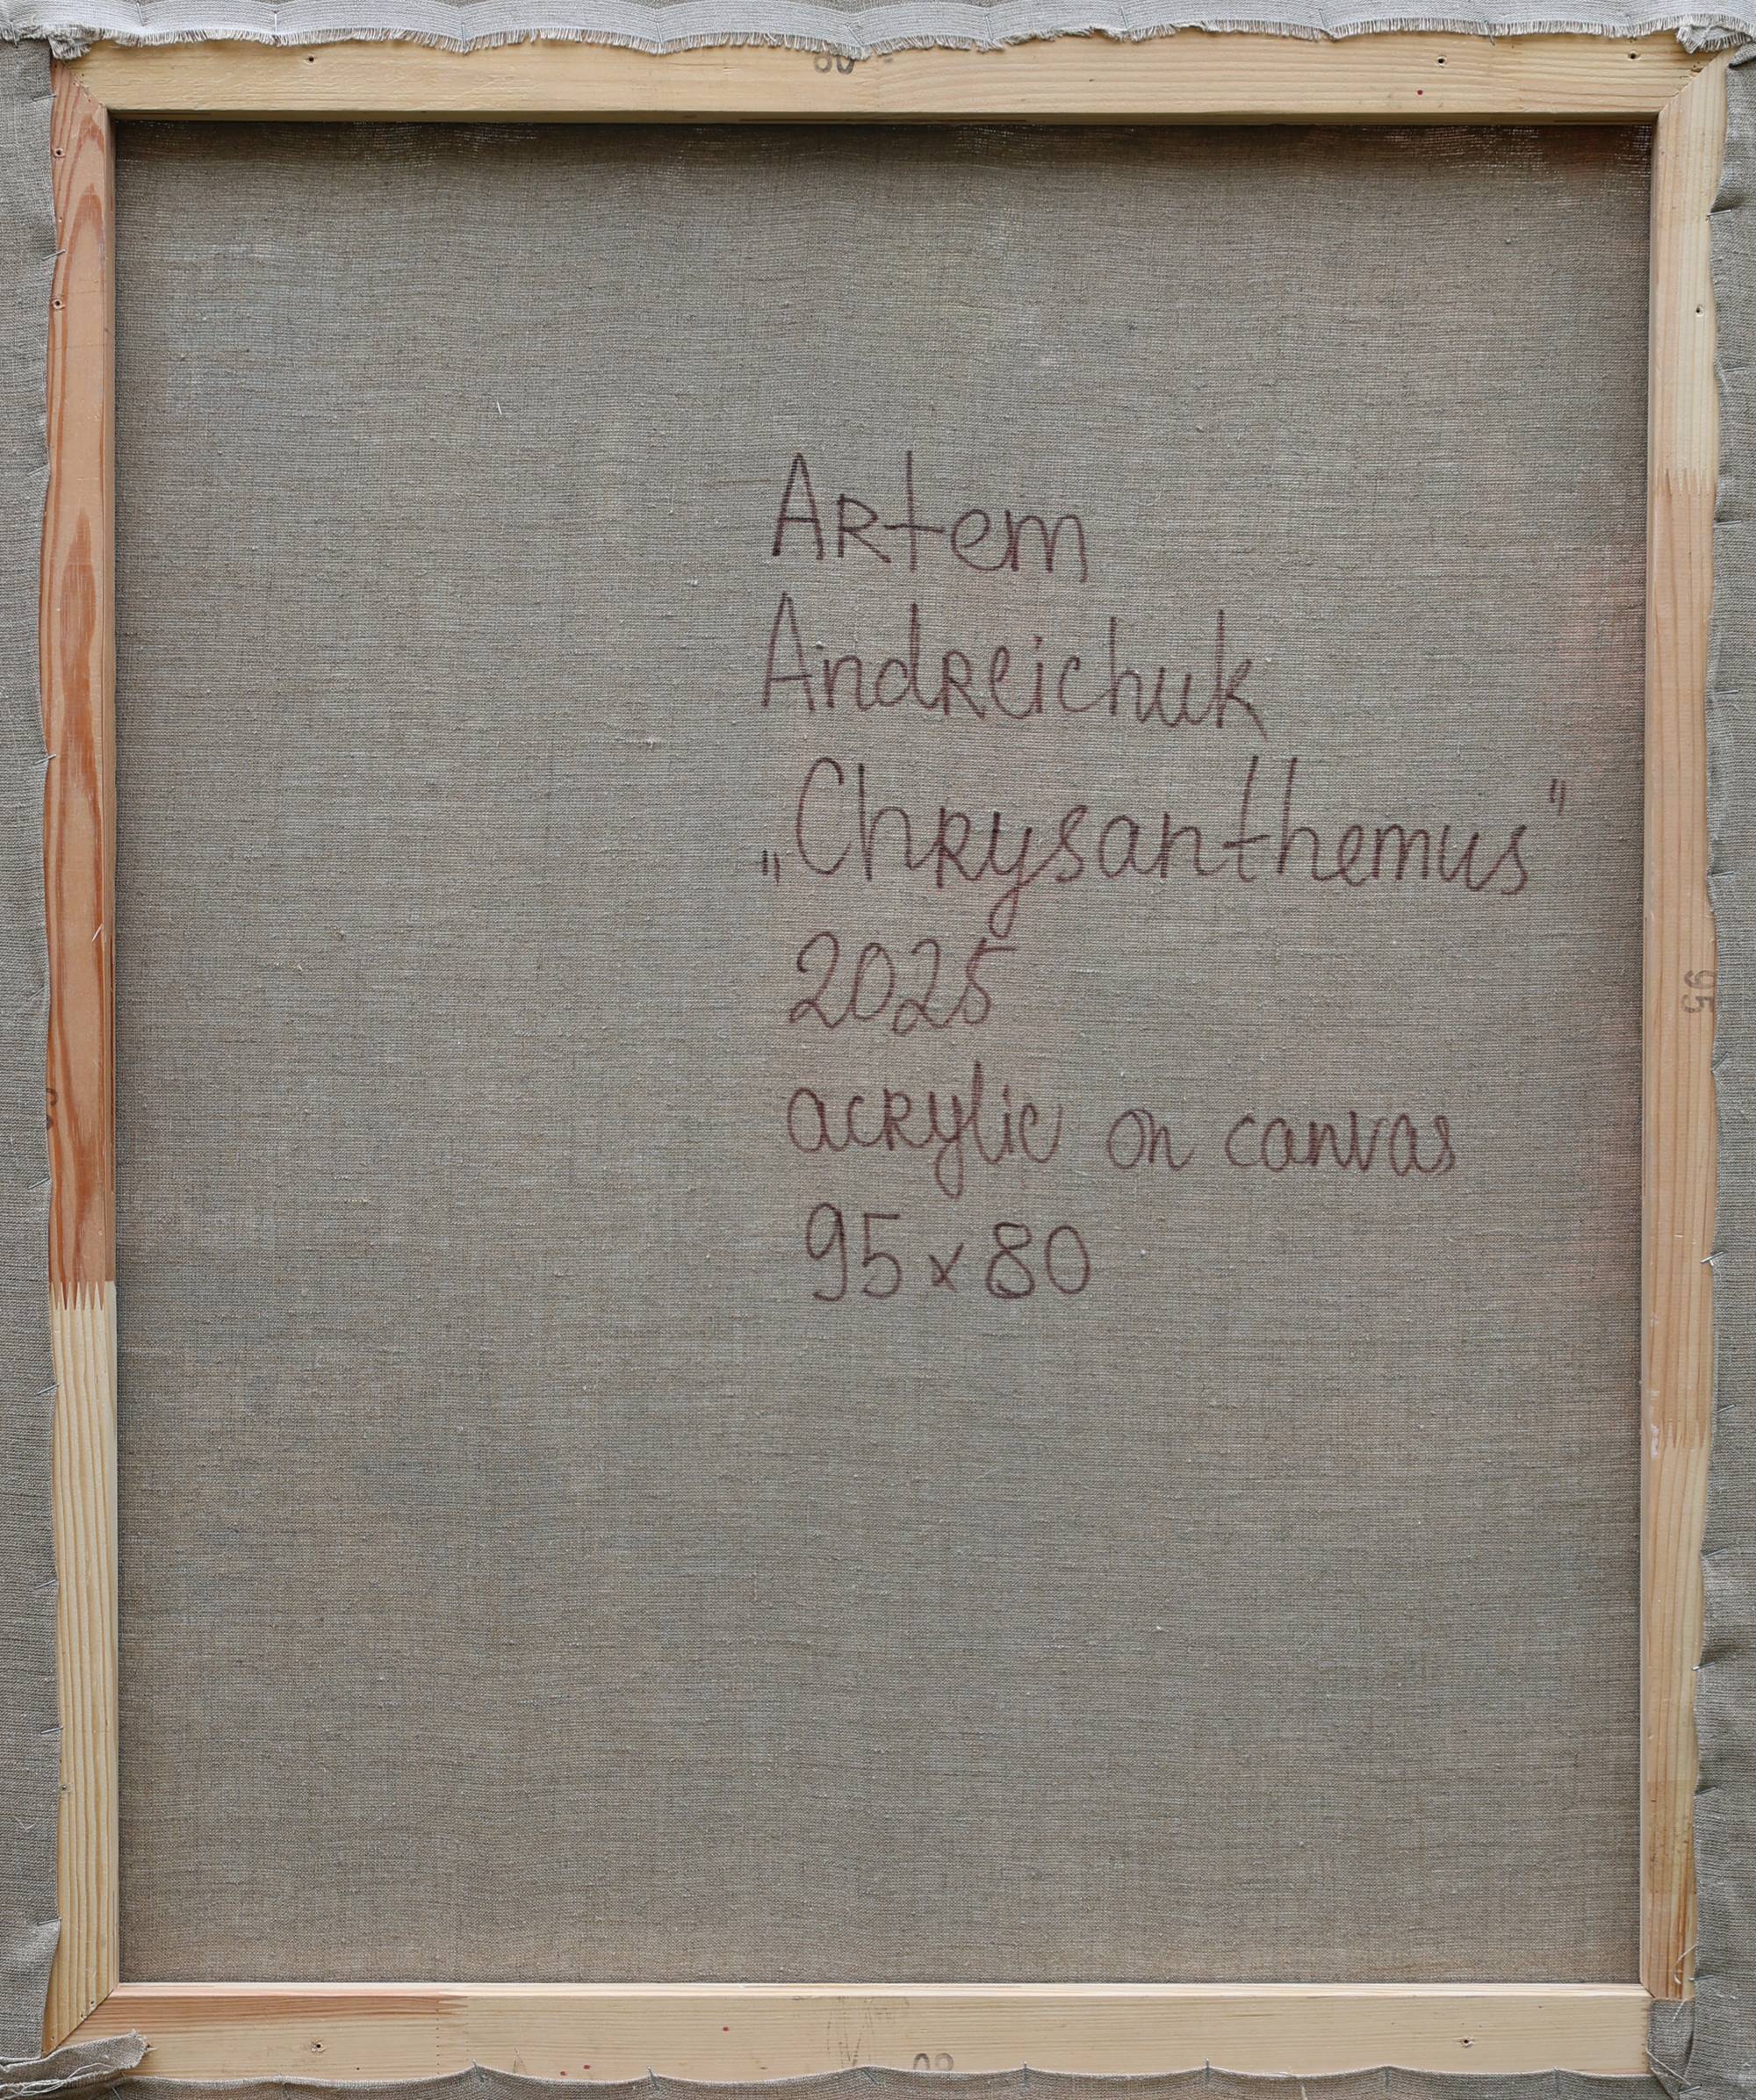 Artem
Andreichuk
„Chrysanthemus"
2025
acrylic on canvas
95x80
95